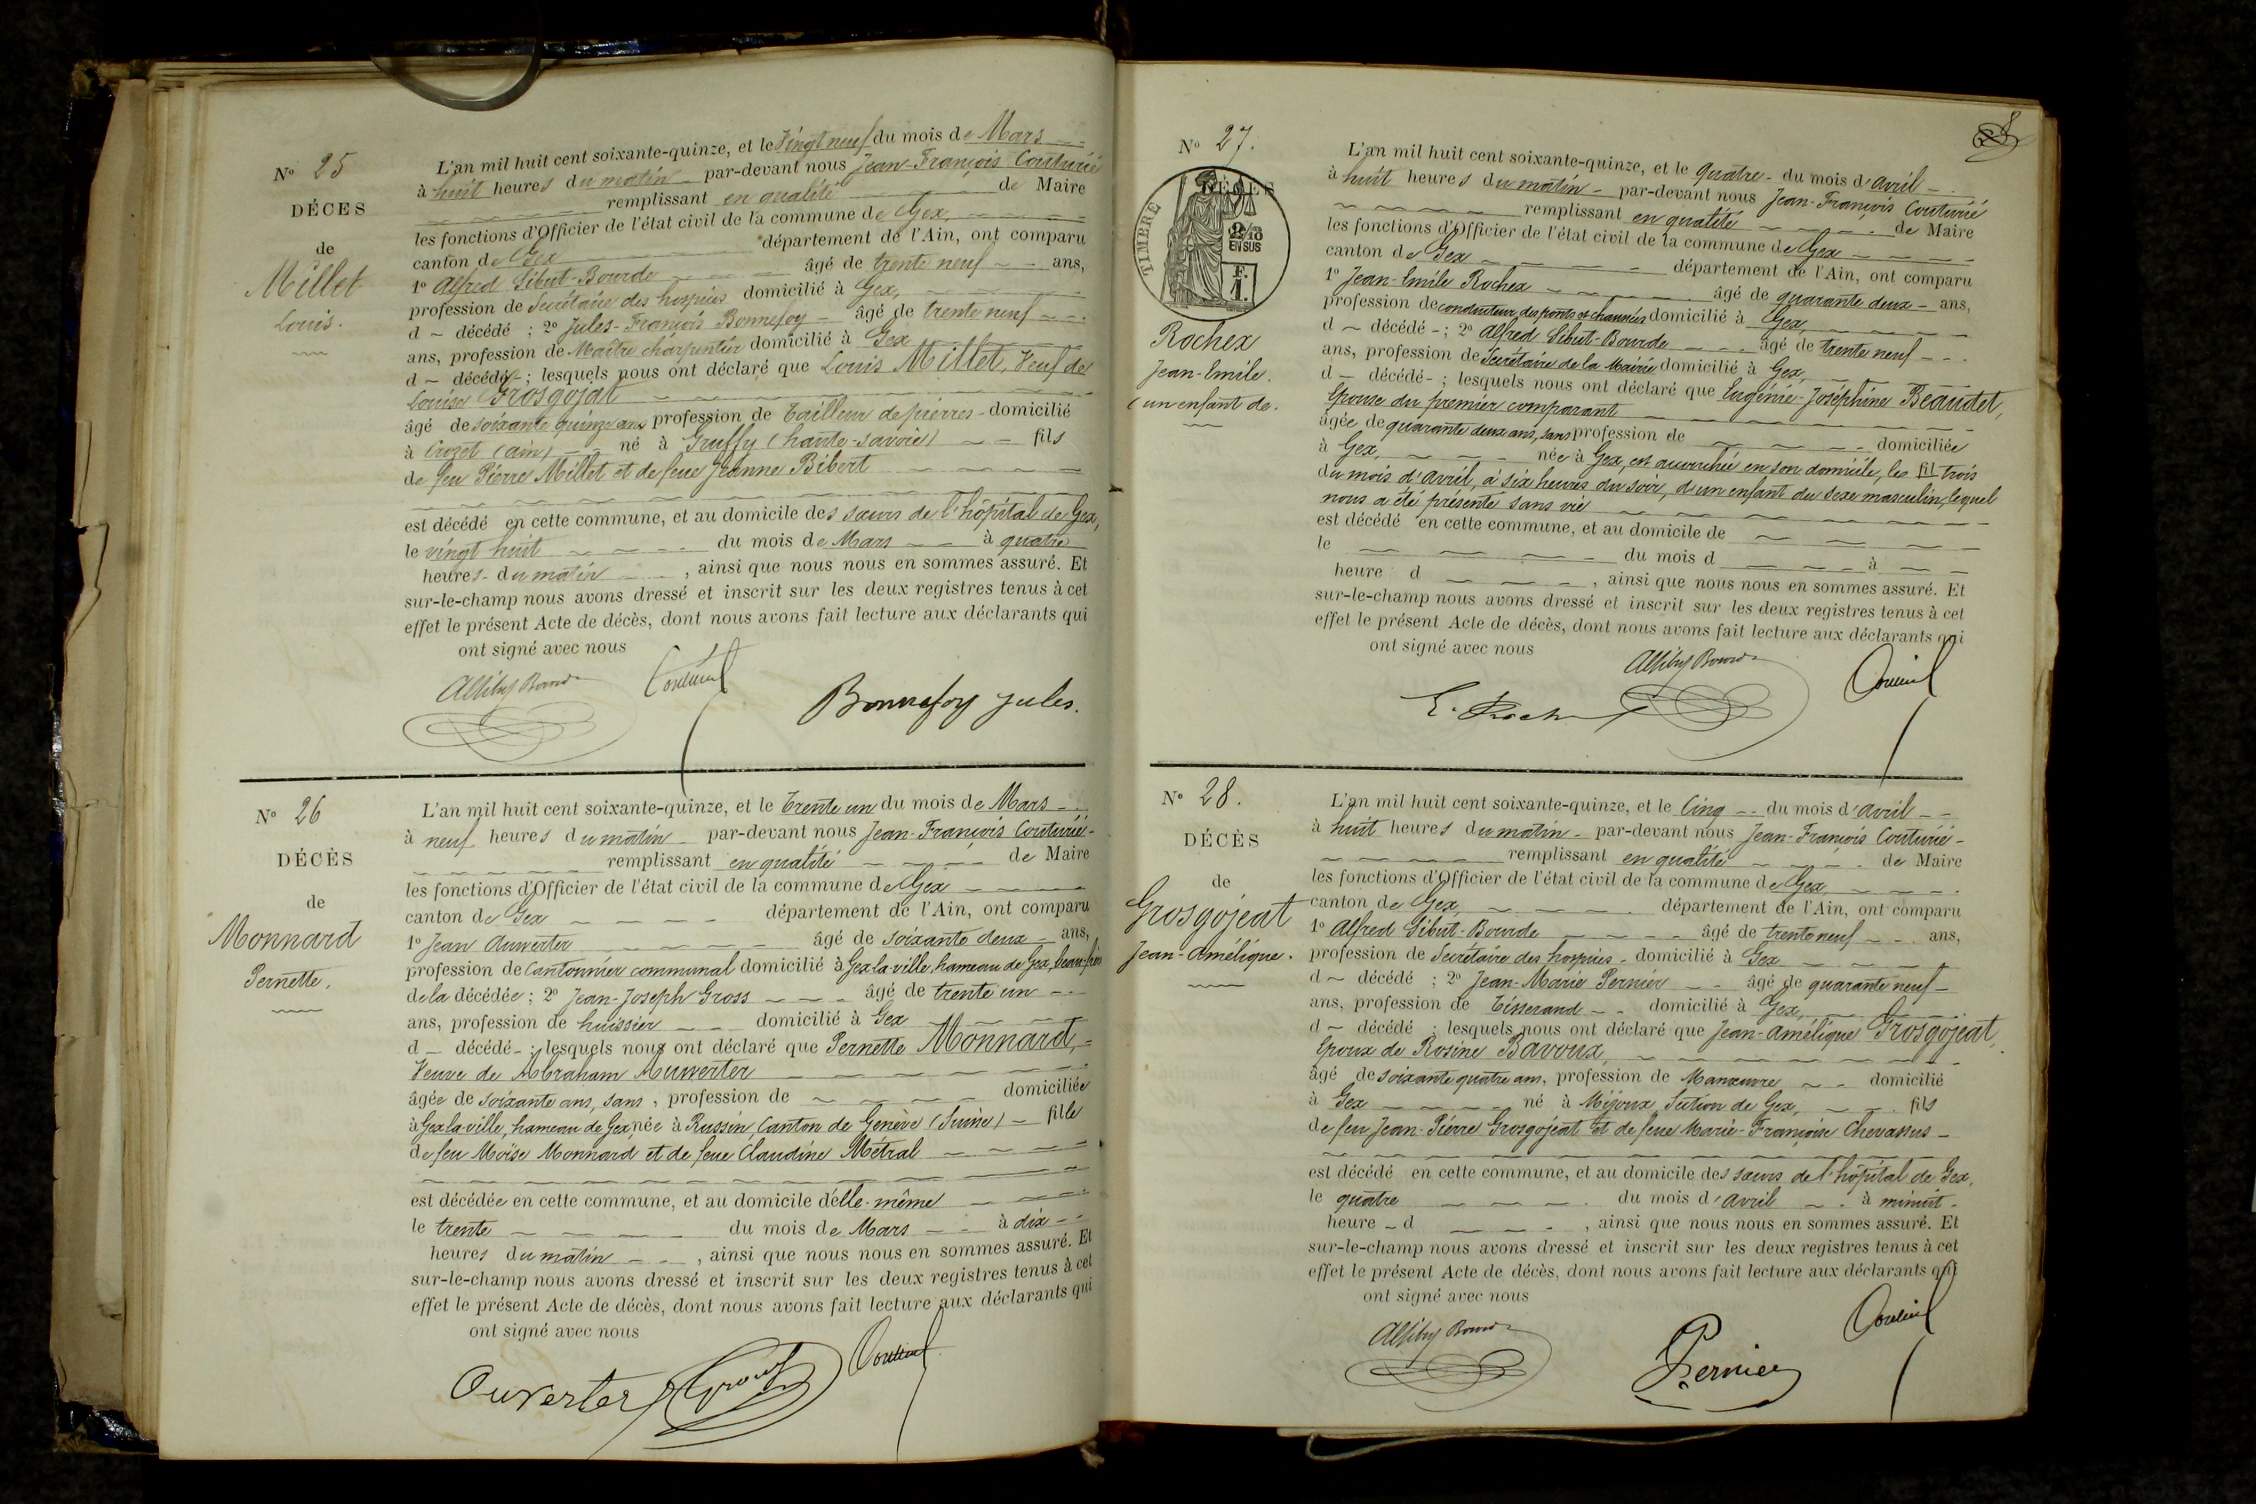 N° 25
DÉCES
de
Millet
Louis.
L'an mil huit cent soixante-quinze, et le Vingt neuf du mois de Mars
à huit heures du matin par-devant nous Jean-François Couturié
remplissant en qualité de Maire
les fonctions d'Officier de l'état civil de la commune de Gex,
canton de Gex département de l'Ain, ont comparu
1° Alfred Sibut-Bourde âgé de trente neuf ans,
profession de Secrétaire des hospices domicilié à Gex,
d décédé ; 2° Jules-François Bonnefoy âgé de trente neuf
ans, profession de Maître charpentier domicilié à Gex
d décédé ; lesquels nous ont déclaré que Louis Millet, Veuf de
Louise Grosgojat
âgé de soixante quinze ans profession de tailleur de pierres domicilié
à Crozet (ain) né à Gruffy (haute-savoie) fils
de feu Pierre Millet et de feue Jeanne Bibert
est décédé en cette commune, et au domicile des sœurs de l'hôpital de Gex,
le vingt huit du mois de Mars à quatre
heures du matin , ainsi que nous nous en sommes assuré. Et
sur-le-champ nous avons dressé et inscrit sur les deux registres tenus à cet
effet le présent Acte de décès, dont nous avons fait lecture aux déclarants qui
ont signé avec nous
Bonnefoy Jules.
N° 26
DÉCÈS
de
Monnard
Pernette.
L'an mil huit cent soixante-quinze, et le trente un du mois de Mars
à neuf heures du matin par-devant nous Jean-François Couturié
remplissant en qualité de Maire
les fonctions d'Officier de l'état civil de la commune de Gex
canton de Gex département de l'Ain, ont comparu
1° Jean Auwerter âgé de soixante deux ans,
profession de Cantonnier communal domicilié à Gex-la-ville, hameau de Gex, beau-frère
de la décédée ; 2° Jean-Joseph Gross âgé de trente un
ans, profession de huissier domicilié à Gex
d décédé ; lesquels nous ont déclaré que Pernette Monnard,
Veuve de Abraham Auwerter
âgée de soixante ans, sans , profession de domiciliée
à Gex-la-ville, hameau de Gex, née à Russin, Canton de Genève (Suisse) fille
de feu Moïse Monnard et de feue Claudine Métral
est décédée en cette commune, et au domicile d'elle-même
le trente du mois de Mars à dix
heures du matin , ainsi que nous nous en sommes assuré. Et
sur-le-champ nous avons dressé et inscrit sur les deux registres tenus à cet
effet le présent Acte de décès, dont nous avons fait lecture aux déclarants qui
ont signé avec nous
Ouverter
N° 27.
DÉCÈS
TIMBRE
2/10
EN SUS
F.
1.
Rochex
Jean-Emile.
(un enfant de.
L'an mil huit cent soixante-quinze, et le quatre du mois d'avril
à huit heures du matin par-devant nous Jean-François Couturié
remplissant en qualité de Maire
les fonctions d'Officier de l'état civil de la commune de Gex
canton de Gex département de l'Ain, ont comparu
1° Jean-Emile Rochex âgé de quarante deux ans,
profession de conducteur des ponts et chaussées domicilié à Gex,
d décédé ; 2° Alfred Sibut-Bourde âgé de trente neuf
ans, profession de Secrétaire de la Mairie domicilié à Gex,
d décédé ; lesquels nous ont déclaré que Eugénie-Joséphine Beaudet,
Epouse du premier comparant
âgée de quarante deux ans, sans profession de domiciliée
à Gex, née à Gex, est accouchée en son domicile, le fil trois
du mois d'avril, à six heures du soir, d'un enfant du sexe masculin, lequel
nous a été présenté sans vie
est décédé en cette commune, et au domicile de
le du mois d à
heure d , ainsi que nous nous en sommes assuré. Et
sur-le-champ nous avons dressé et inscrit sur les deux registres tenus à cet
effet le présent Acte de décès, dont nous avons fait lecture aux déclarants qui
ont signé avec nous
N° 28.
DÉCÈS
de
Grosgojeat
Jean-Amélique.
L'an mil huit cent soixante-quinze, et le Cinq du mois d'avril
à huit heures du matin par-devant nous Jean-François Couturié
remplissant en qualité de Maire
les fonctions d'Officier de l'état civil de la commune de Gex,
canton de Gex, département de l'Ain, ont comparu
1° Alfred Sibut-Bourde âgé de trente neuf ans,
profession de Secrétaire des hospices domicilié à Gex
d décédé ; 2° Jean-Marie Pernier âgé de quarante neuf
ans, profession de Tisserand domicilié à Gex,
d décédé ; lesquels nous ont déclaré que Jean-Amélique Grosgojeat,
Epoux de Rosine Bavoux,
âgé de soixante quatre ans, profession de Manœuvre domicilié
à Gex né à Mijoux, Section de Gex, fils
de feu Jean-Pierre Grosgojeat et de feue Marie-Françoise Chevassus
est décédé en cette commune, et au domicile des sœurs de l'hôpital de Gex,
le quatre du mois d'avril à minuit.
heure d , ainsi que nous nous en sommes assuré. Et
sur-le-champ nous avons dressé et inscrit sur les deux registres tenus à cet
effet le présent Acte de décès, dont nous avons fait lecture aux déclarants qui
ont signé avec nous
Pernier